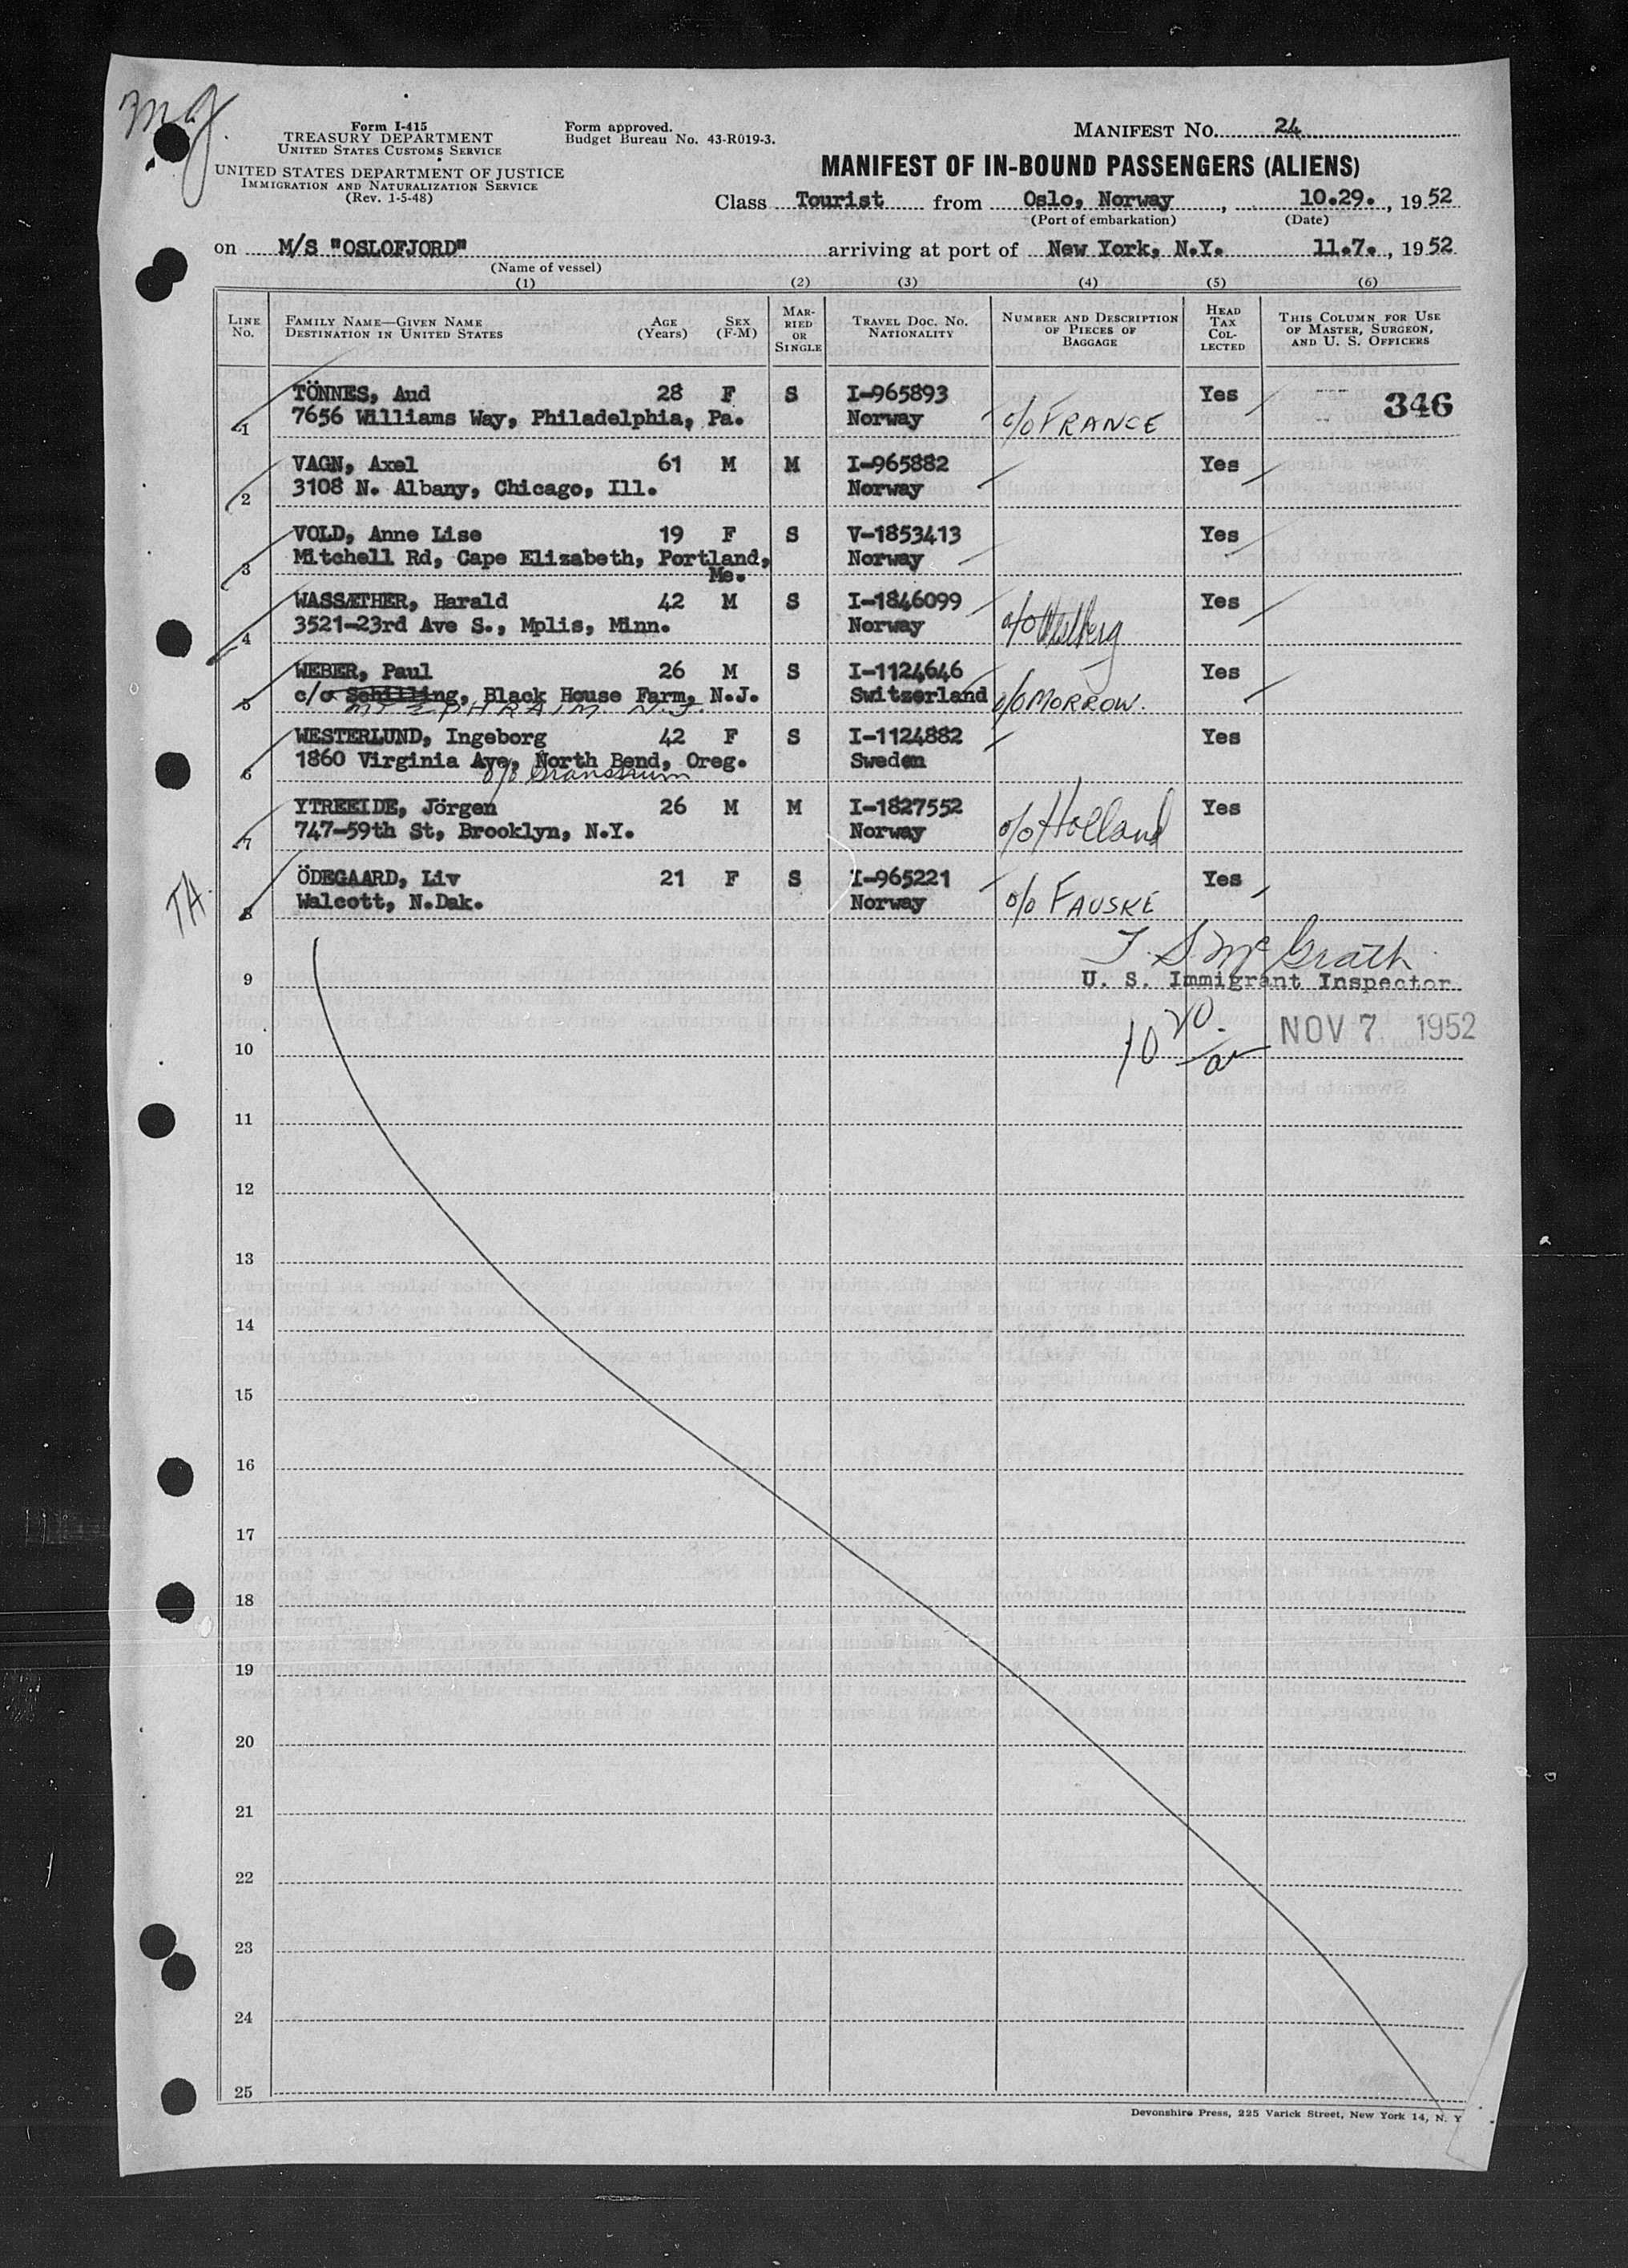 mg.
Form I-415
TREASURY DEPARTMENT
UNITED STATES CUSTOMS SERVICE
UNITED STATES DEPARTMENT OF JUSTICE
IMMIGRATION AND NATURALIZATION SERVICE
(Rev. 1-5-48)
Form approved.
Budget Bureau No. 43-R019-3.
MANIFEST NO. 24
MANIFEST OF IN-BOUND PASSENGERS (ALIENS)
Class Tourist from Oslo, Norway, 10.29., 1952
(Port of embarkation) (Date)
on M/S "OSLOFJORD" arriving at port of New York, N.Y. 11.7., 1952
(Name of vessel)
(1) (2) (3) (4) (5) (6)
LINE NO. FAMILY NAME—GIVEN NAME DESTINATION IN UNITED STATES AGE (Years) SEX (F-M) MARRIED OR SINGLE TRAVEL DOC. NO. NATIONALITY NUMBER AND DESCRIPTION OF PIECES OF BAGGAGE HEAD TAX COLLECTED THIS COLUMN FOR USE OF MASTER, SURGEON, AND U. S. OFFICERS
TÖNNES, Aud 28 F S I-965893 Yes 346
1 7656 Williams Way, Philadelphia, Pa. Norway c/o FRANCE
VAGN, Axel 61 M M I-965882 Yes
2 3108 N. Albany, Chicago, Ill. Norway
VOLD, Anne Lise 19 F S V-1853413 Yes
3 Mitchell Rd, Cape Elizabeth, Portland, Norway
Me.
WASSÆTHER, Harald 42 M S I-1846099 Yes
4 3521-23rd Ave S., Mplis, Minn. Norway c/o
WEBER, Paul 26 M S I-1124646 Yes
5 c/o Schilling, Black House Farm, N.J. Switzerland c/o MORROW.
MT EPHRAIM N.J.
WESTERLUND, Ingeborg 42 F S I-1124882 Yes
6 1860 Virginia Ave, North Bend, Oreg. Sweden
c/o
YTREEIDE, Jörgen 26 M M I-1827552 Yes
7 747-59th St, Brooklyn, N.Y. Norway c/o Holland
TA.
ÖDEGAARD, Liv 21 F S I-965221 Yes
8 Walcott, N.Dak. Norway c/o FAUSKE
T. S. McGrath
9 U. S. Immigrant Inspector
10 10 20/a NOV 7 1952
11
12
13
14
15
16
17
18
19
20
21
22
23
24
25
Devonshire Press, 225 Varick Street, New York 14, N. Y